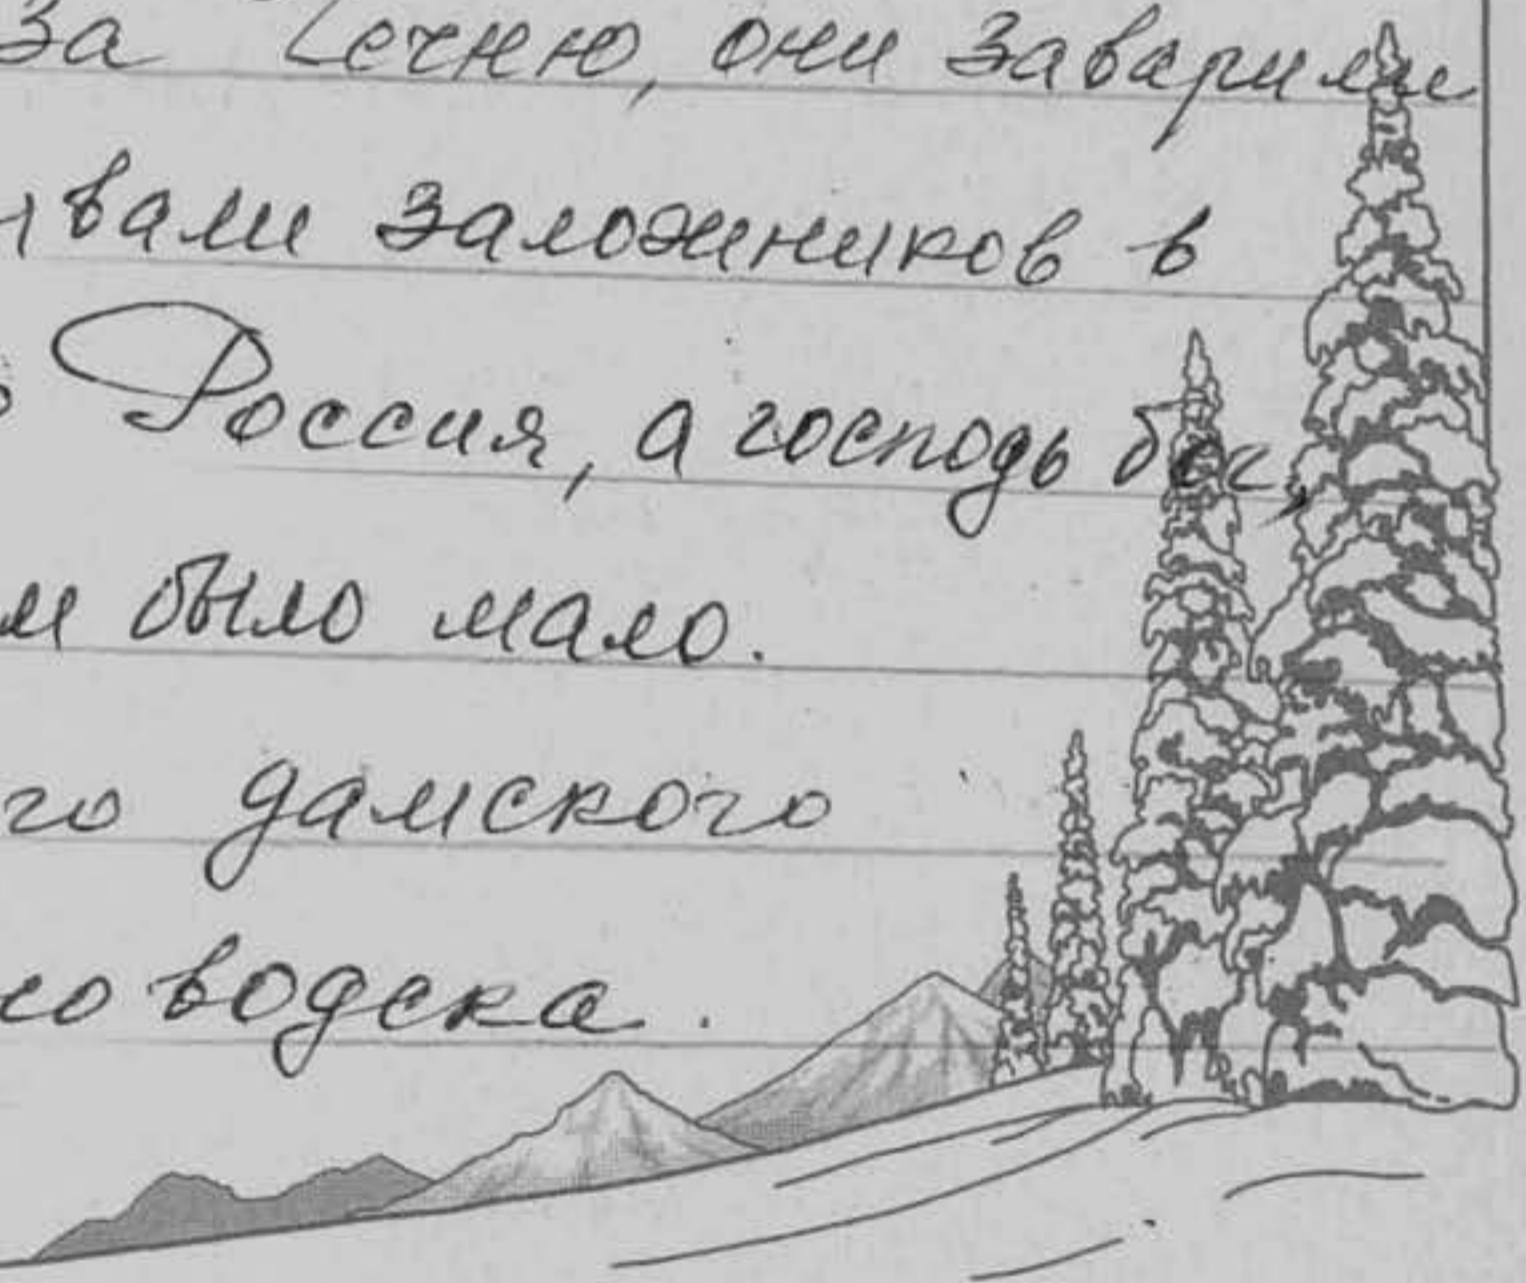 за Чечню, они заварили
вали заложников в
Россия, а господь бог,
м было мало.
го дамского
го водска.